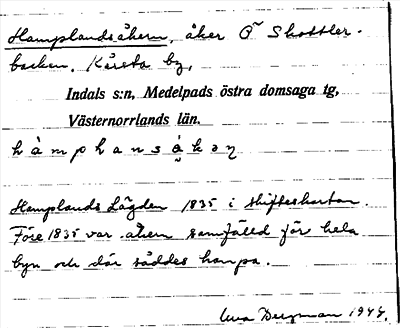 Hamplandsåkern, åker Ö Skottler-
backen. Kårsta by,
Indals s:n, Medelpads östra domsaga tg,
Västernorrlands län.
hàmphansåkəη
Hamplands Lägden 1835 i skifteskartan.
Före 1835 var åkern samfälld för hela
byn och där såddes hampa.
Bergman 1944.